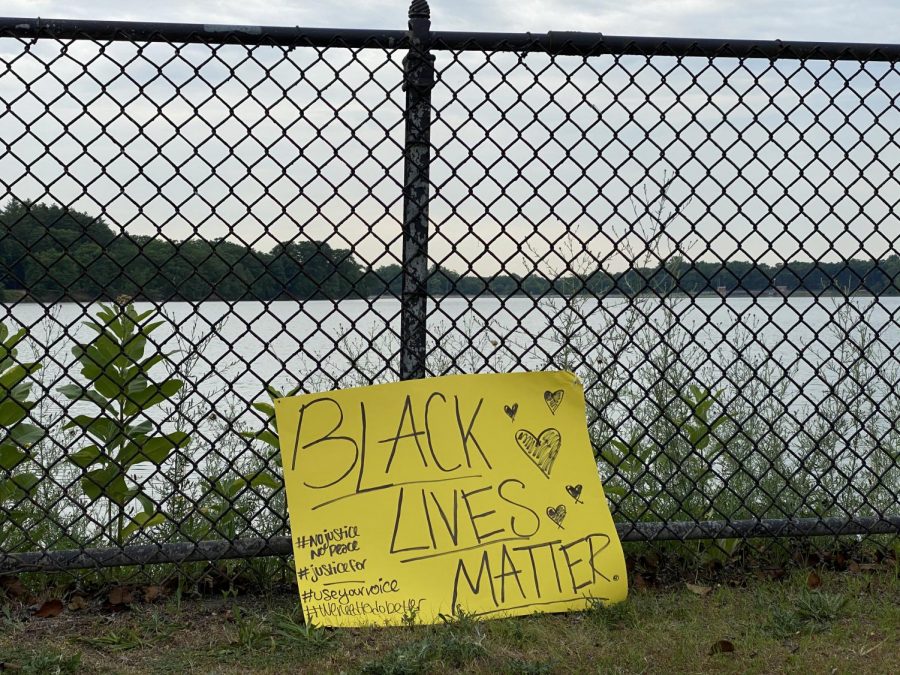 BLACK
LIVES
MATTER.
#NOJUSTICE
NOPEACE
#justiceFor
#useyourvoice
#Weneedtodobetter